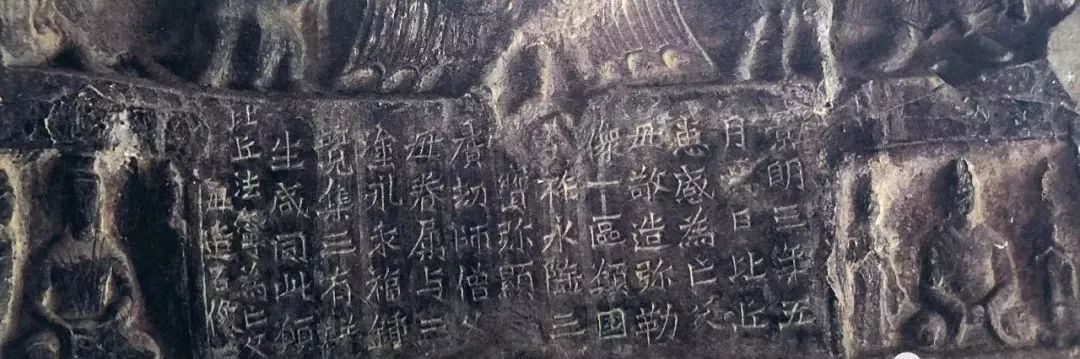 景明三年五
月日比丘
惠感為亡父
母敬造弥勒
像一區願國
祚永隆三
寳弥顯
曠劫師僧父
母眷屬與三
塗永乖福鍾
竟集三有群
生咸同此願
比丘法寧為亡父
母造石像